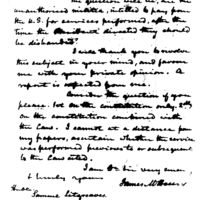 the question will be, are the
entitled to pay from
the U.S. for services performed, after the
time the President directed they should
be disbanded?
I will thank you to revolve
this subject in your mind, and favour
me with your private opinion. A
report is expected from me.
Consider the question if you
please. 1st on the constitution only. 2nd
on the constitution combined with
the Laws. I cannot at a distance from
my papers, ascertain whether the service
was performed previous to or subsequent
to the Law cited.
I am Dr Sir very
& truly yours
James McHenry
Samuel Sitgreaves